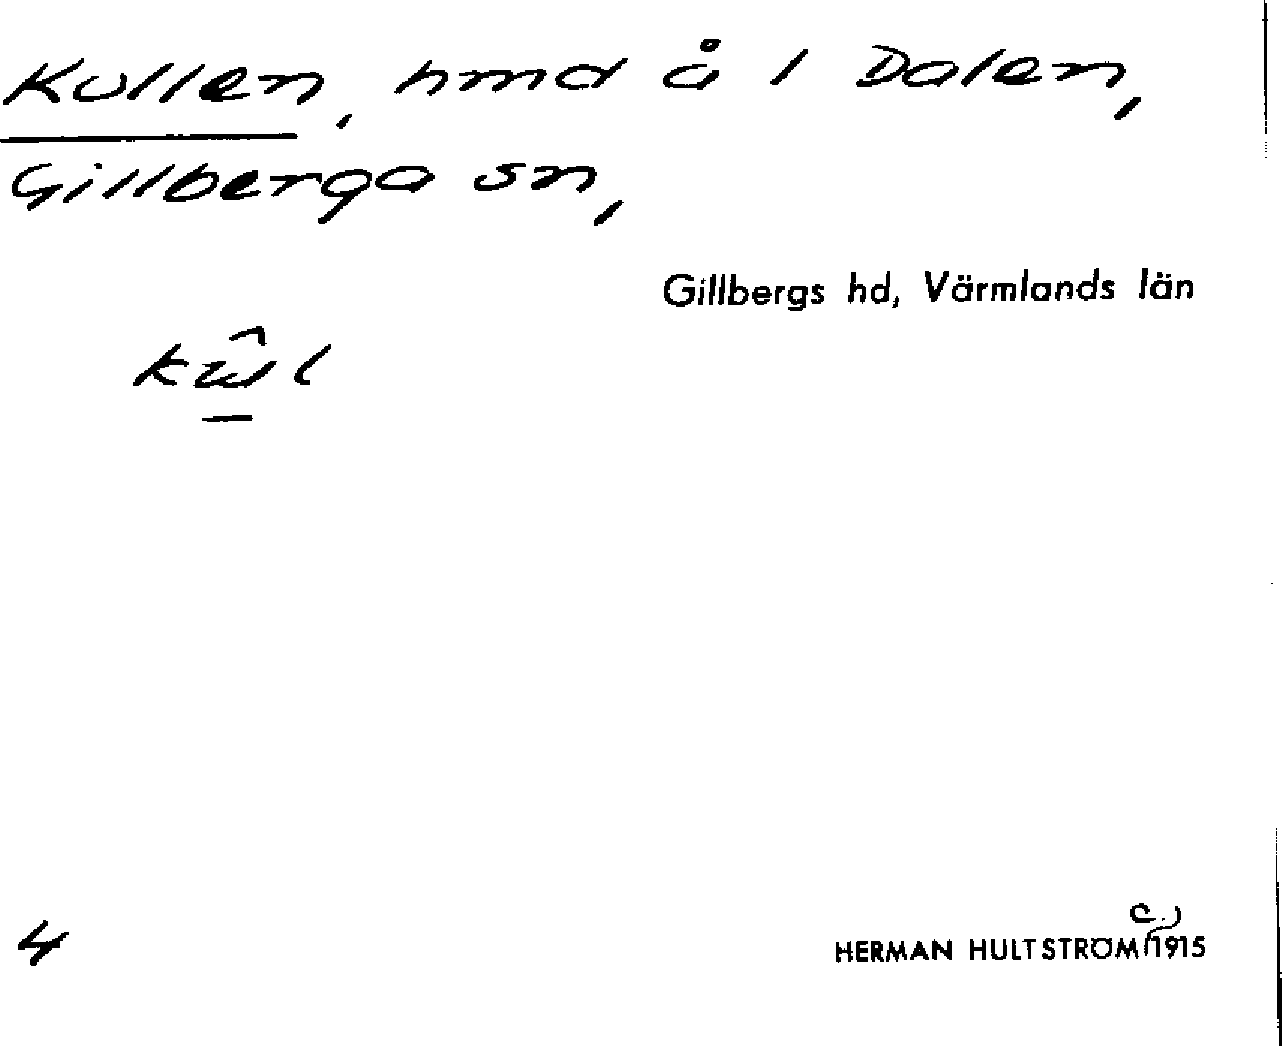 Kullen, hmd å 1 Dalen,
Gillberga sn,
Gillbergs hd, Värmlands län
4
HERMAN HULTSTRÖM 1915